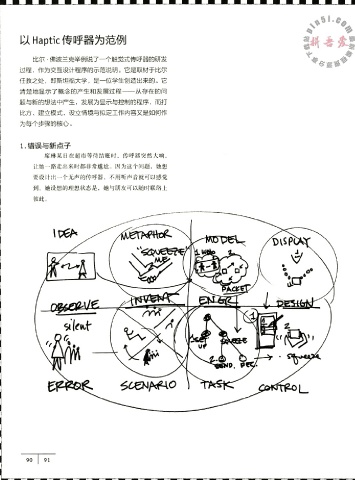 以 Haptic 传呼器为范例
比尔·佛波兰克举例说了一个触觉式传呼器的研发
过程，作为交互设计程序的示范说明。它是取材于比尔
任教之处，即斯坦福大学，是一位学生创造出来的。它
清楚地显示了概念的产生和发展过程——从存在的问
题与新的想法中产生，发展为显示与控制的程序，而打
比方、建立模式、设立情境与拟定工作内容又是如何作
为每个步骤的核心。
1.错误与新点子
某日在超市等待结账时，传呼器突然大响，
让她一路走出来时都非常尴尬。因为这个问题，她想
要设计出一个无声的传呼器，不用听声音就可以感觉
到。她设想的理想状态是，她与朋友可以随时联络上
彼此。
IDEA
METAPHOR
MODEL
DISPLAY
"SQUEEZE
ME"
PACKET
OBSERVE
INVENT
ENGR.
DESIGN
silent
1. SET
UP
SQUEEZE
2.
SEND, REC.
squeeze
ERROR
SCENARIO
TASK
CONTROL
90 91